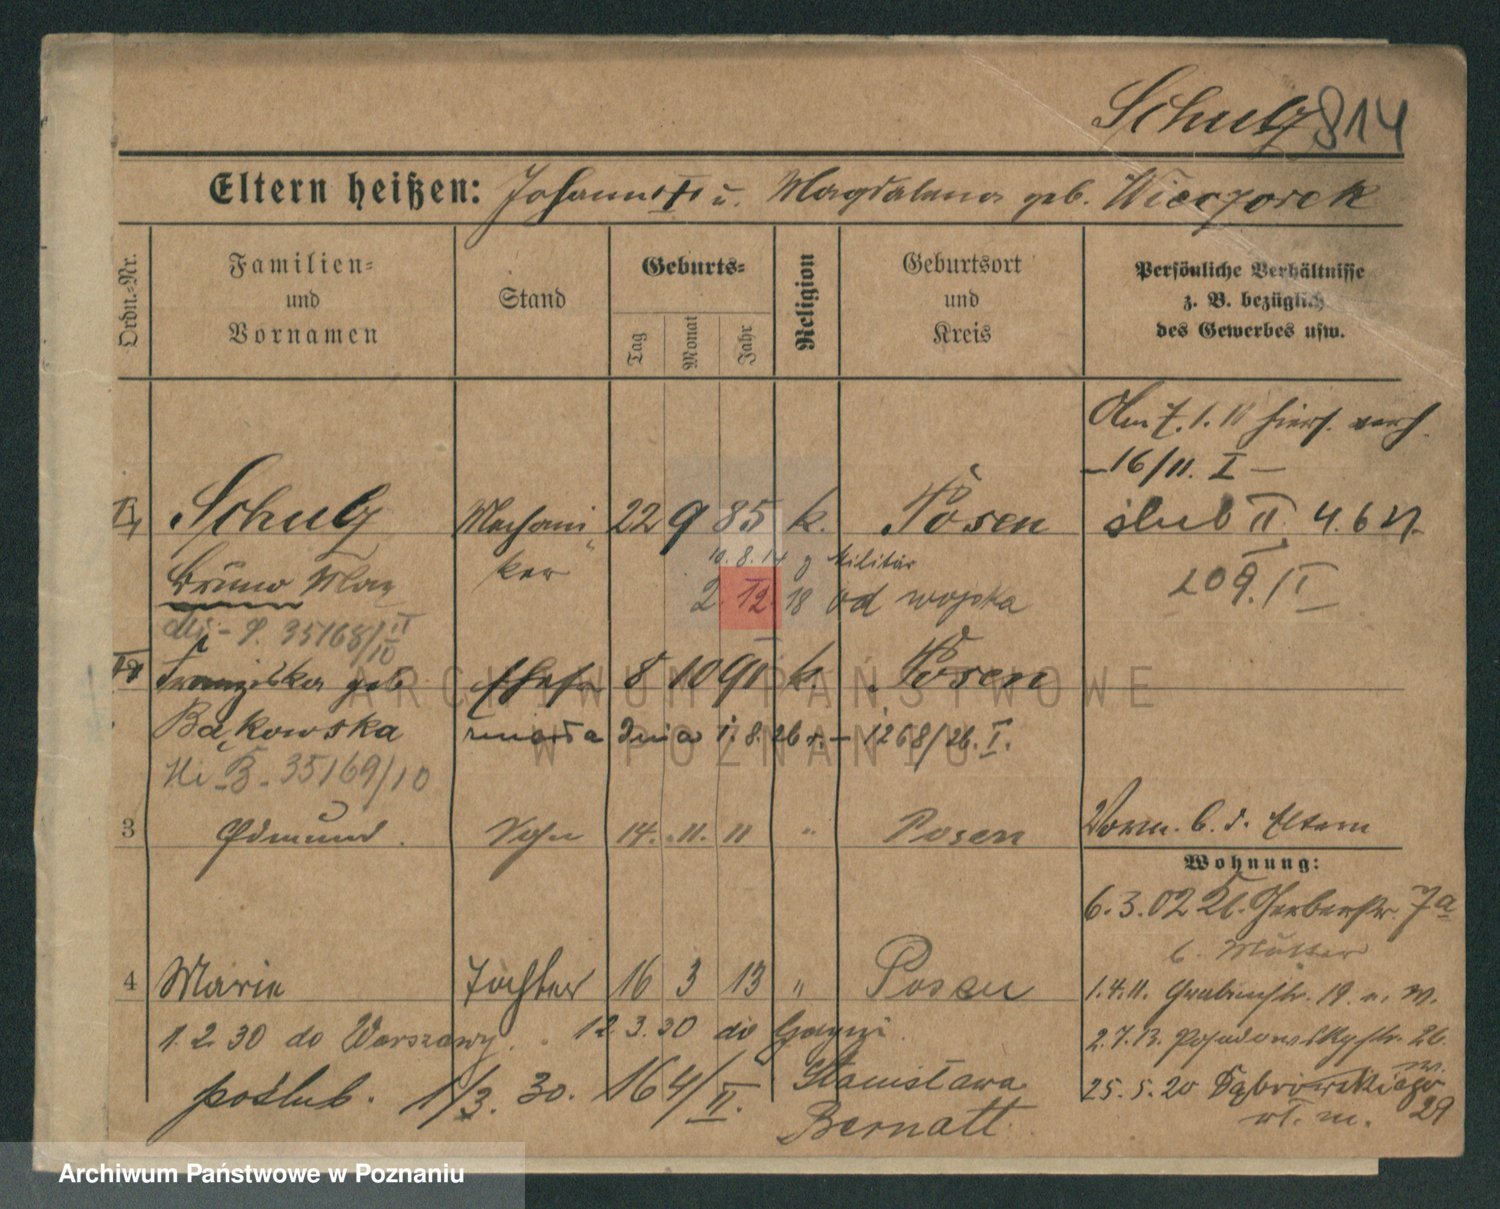 Schulz 814
Eltern heißen: Johann † u. Magdalena geb. Wieczorek
Ordn.-Nr.
Familien-
und
Vornamen
Stand
Geburts-
Tag
Monat
Jahr
Religion
Geburtsort
und
Kreis
Persönliche Verhältnisse
z. B. bezüglich
des Gewerbes usw.
Am 7. 1. 11 hiers. verh.
-16/11. I-
Schulz Mechani- 22 9 85 k. Posen
ślub II. 4. 6
Bruno Max ker
10. 8. 14 z Militär
2. 12. 18 od wojska
209. / II
35168/10
Franziska geb. 8 10 91 k. Posen
Bąkowska zmarła dnia 1. 8. 26 r. - 1268/26. I.
35169/10
3 Edmund. Sohn 14. 11. 11 " Posen
Vorm. b. d. Eltern
Wohnung:
6. 3. 02 Kl. Gerberstr. 7a
b. Mutter
4 Marie Tochter 16 3 13 " Posen
1. 4. 11. Grabenstr. 19.
1. 2. 30 do Warszawy. 12. 3. 30 do
2. 7. 13. Posadowskystr. 26.
25. 5. 20 Dąbrowskiego 29
wł. m.
poślub. 1/3. 30. 164/II. Stanisława
Bernatt
ARCHIWUM PAŃSTWOWE
W POZNANIU
Archiwum Państwowe w Poznaniu